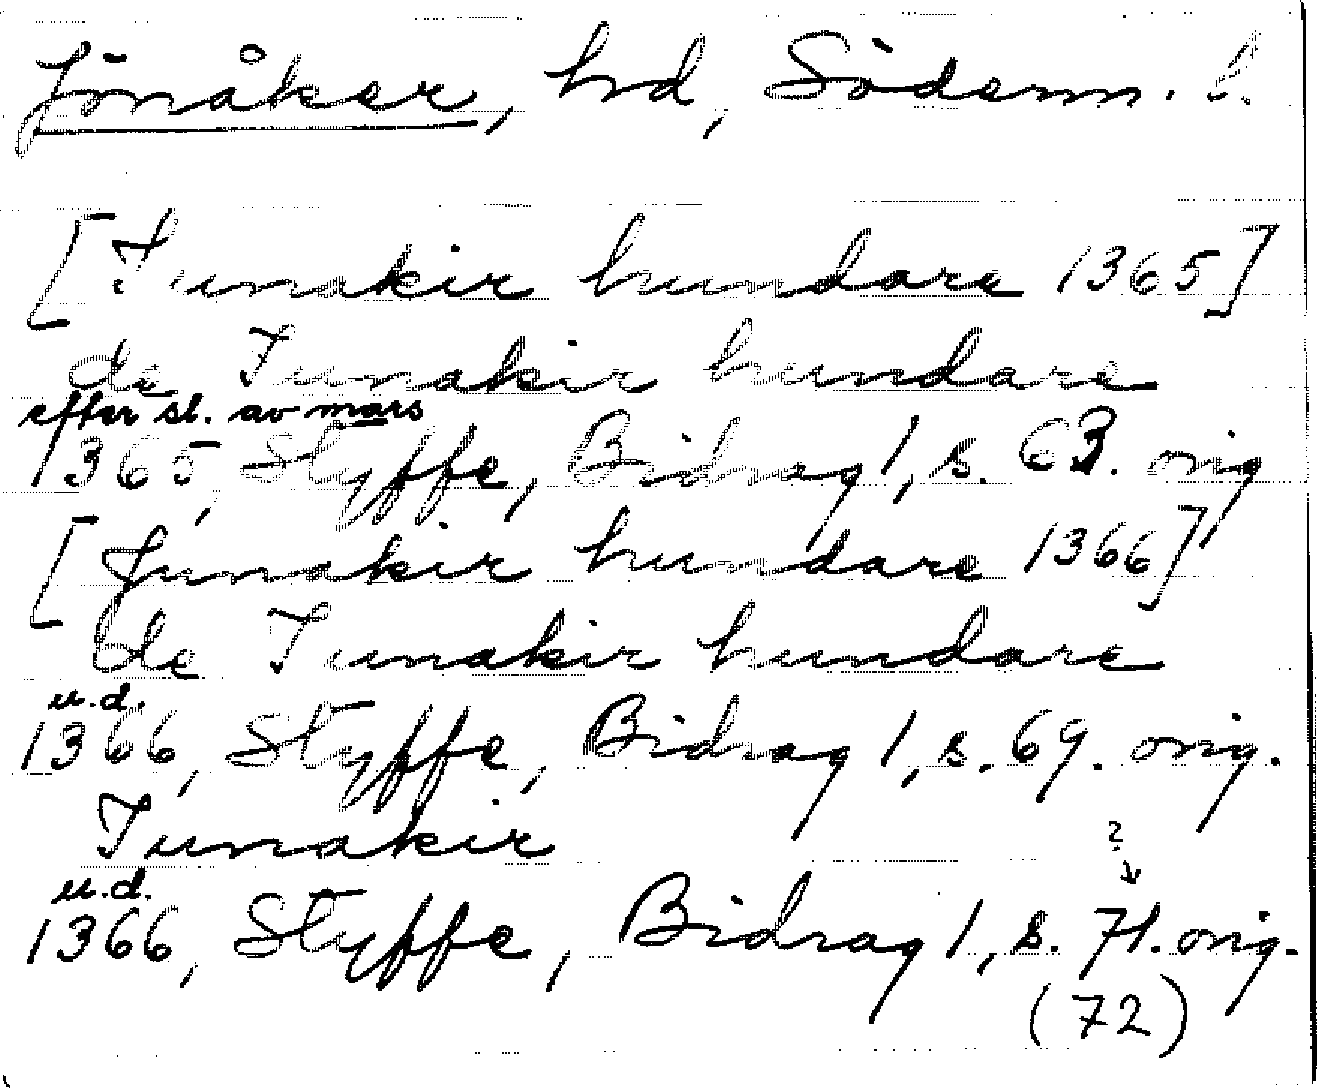 Jönåker, hd, Söderm. l.
[Iunakir hundare 1365]
de Iunakir hundare
efter sl. av mars
1365, Styffe, Bidrag 1, s. 63. orig
[Junakir hundare 1366]
de Iunakir hundare
u.d.
1366, Styffe, Bidrag 1, s. 69. orig.
Iunakir
?
u.d.
1366, Styffe, Bidrag 1, s. 71. orig.
(72)